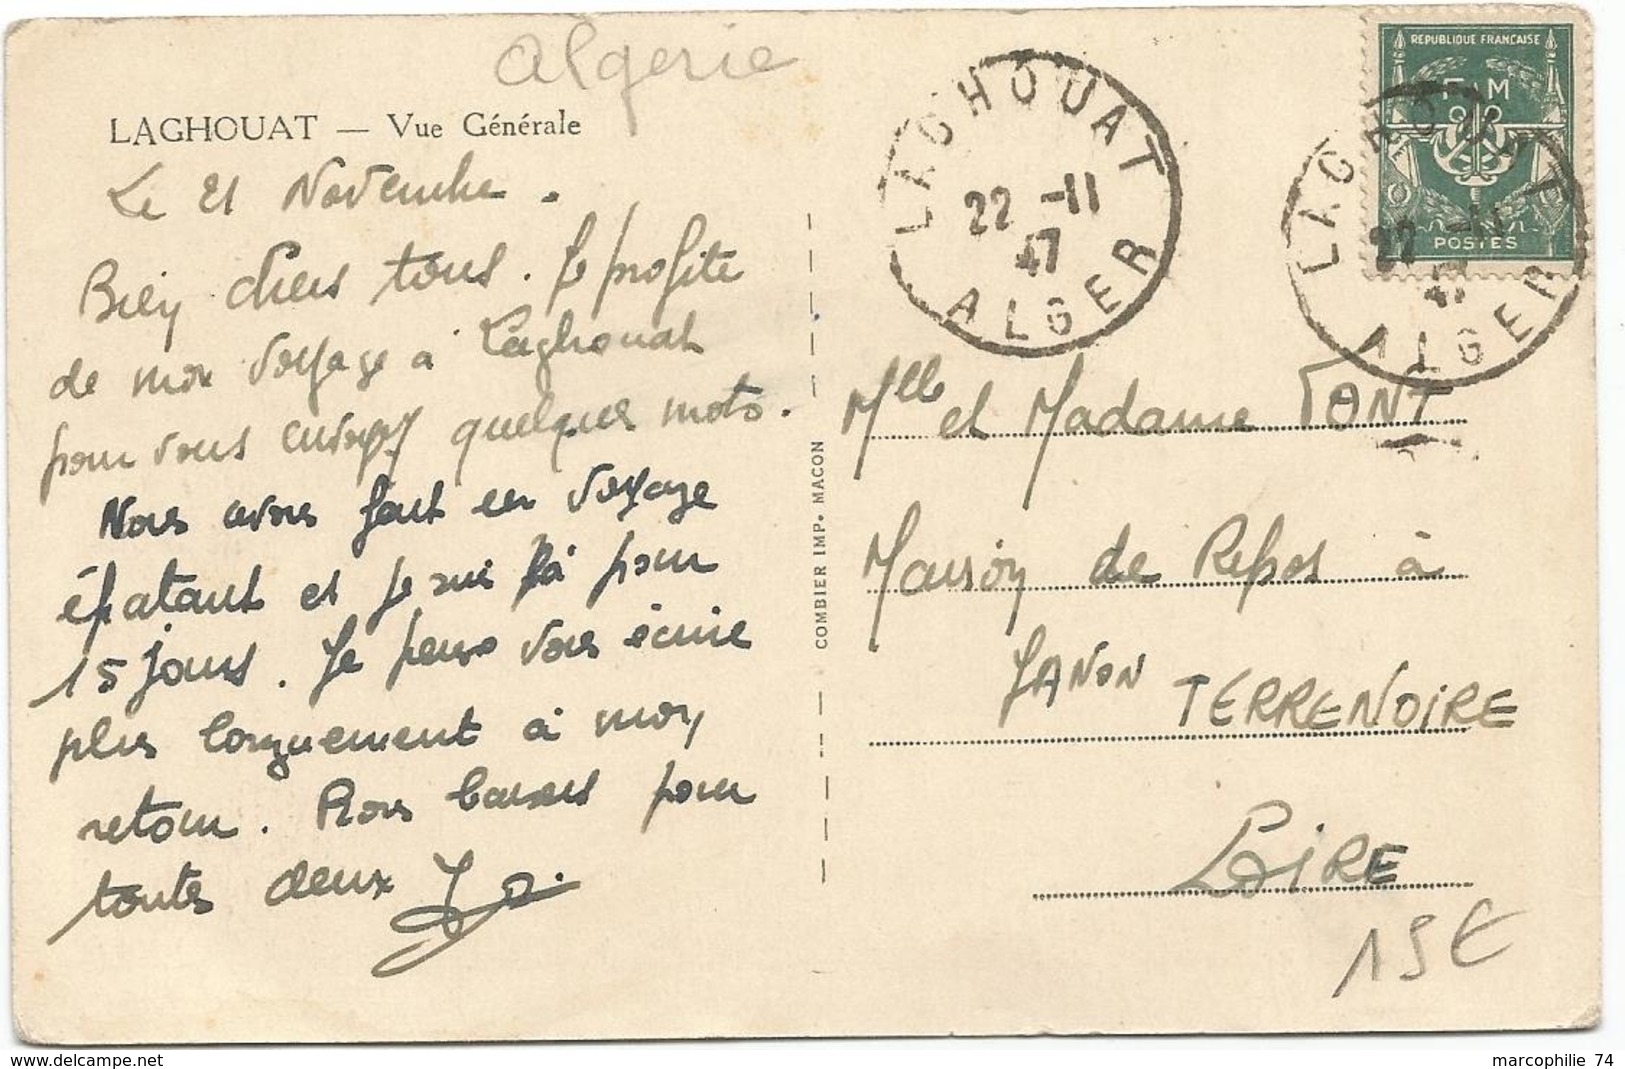 Algerie
LAGHOUAT — Vue Générale
Le 21 Novembre.
Bien chers tous. Je profite
de mon voyage à Laghouat
pour vous envoyer quelques mots.
Nous avons fait un voyage
épatant et je suis là pour
15 jours. Je pense vous écrire
plus longuement à mon
retour. Bons baisers pour
toutes deux
COMBIER IMP. MACON
LAGHOUAT
22 -11
47
ALGER
REPUBLIQUE FRANCAISE
F M
POSTES
LAGHOUAT
22 -11
47
ALGER
Mlle et Madame FONT
Maison de Repos à
JANON TERRENOIRE
LOIRE
15€
marcophilie 74